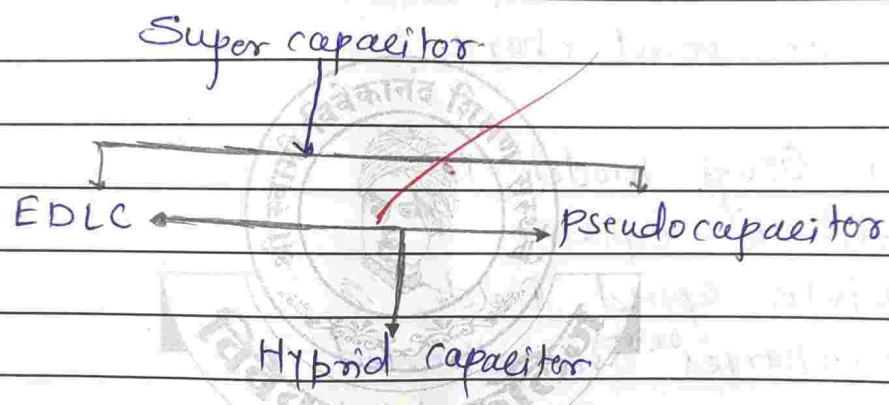 Super capacitor
EDLC
Pseudocapacitor
Hybrid capacitor